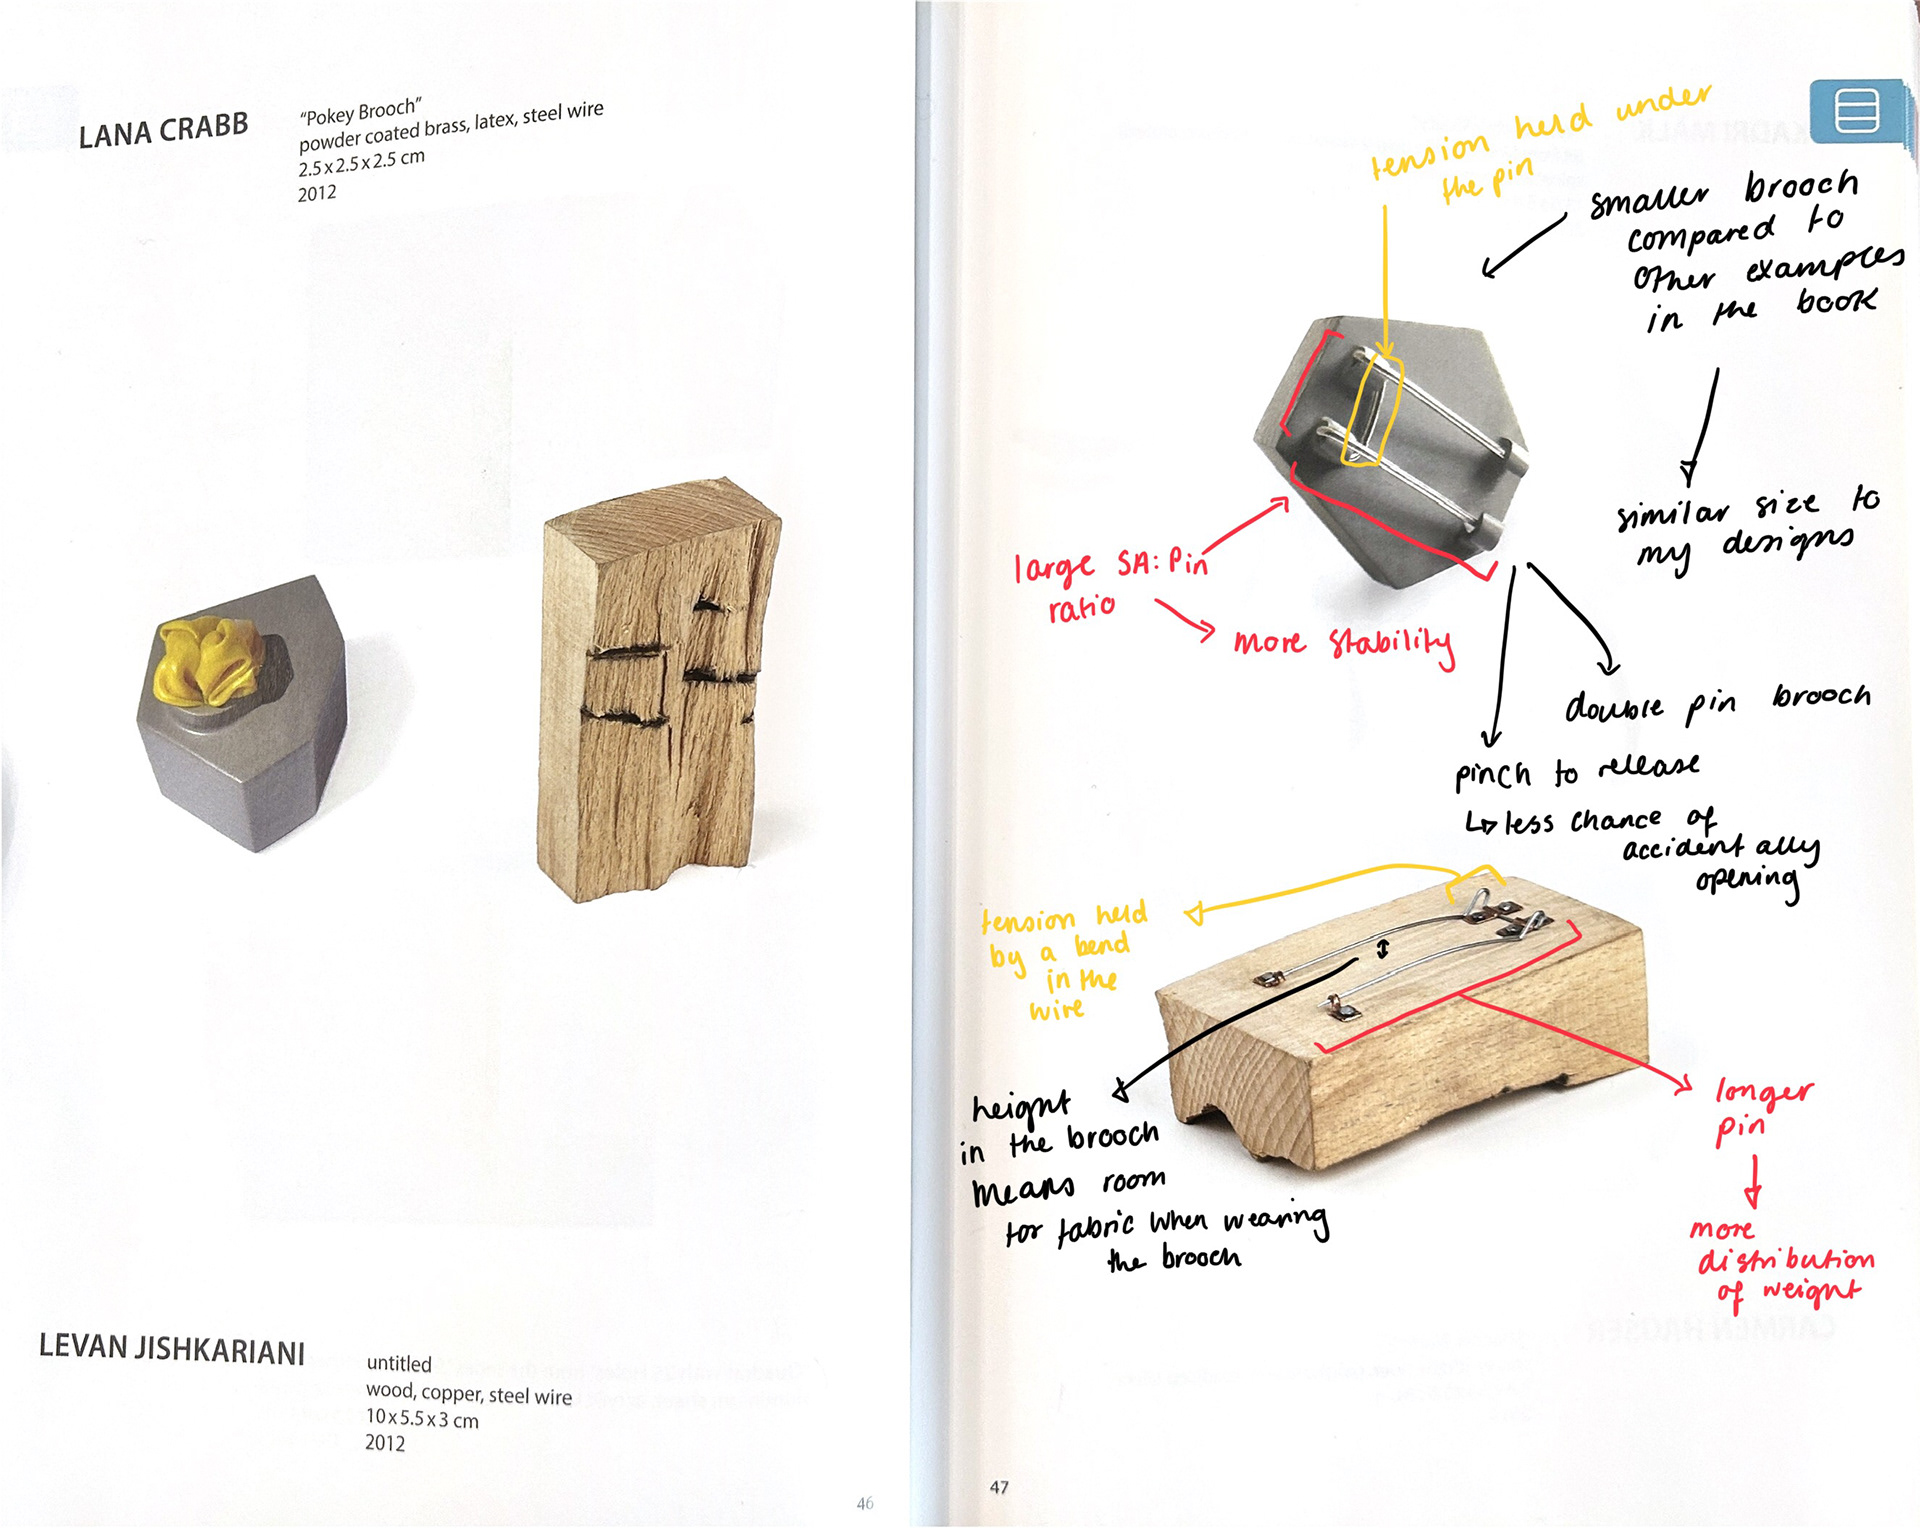 LANA CRABB
"Pokey Brooch"
powder coated brass, latex, steel wire
2.5 x 2.5 x 2.5 cm
2012
LEVAN JISHKARIANI
untitled
wood, copper, steel wire
10 x 5.5 x 3 cm
2012
46
tension held under
the pin
smaller brooch
compared to
other examples
in the book
similar size to
my designs
large SA: Pin
ratio
more stability
double pin brooch
pinch to release
↳ less chance of
accidentally
opening
tension held
by a bend
in the
wire
height
in the brooch
means room
for fabric when wearing
the brooch
longer
pin
more
distribution
of weight
47